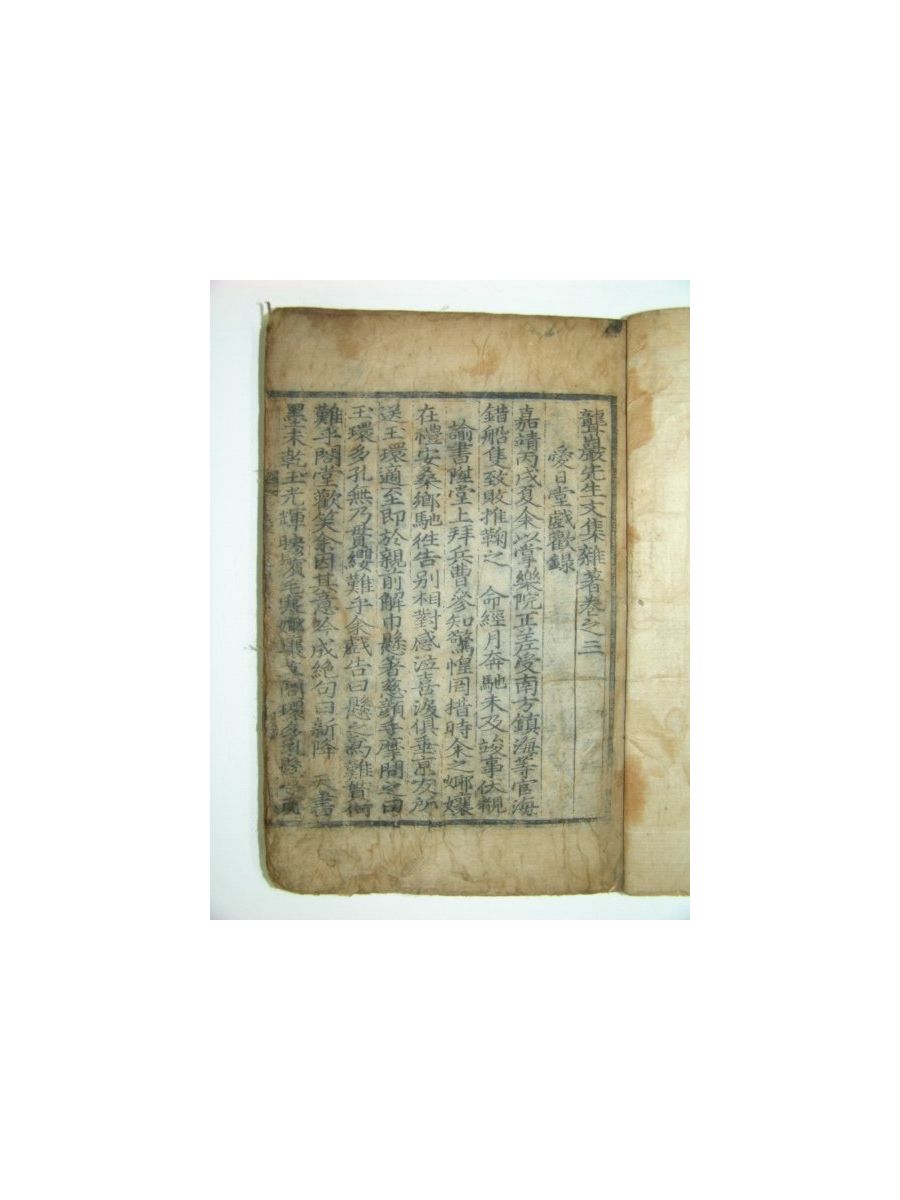 聾巖先生文集雜著卷之三
愛日堂戲歡錄
嘉靖丙戌夏余以掌樂院正差受南方鎮海等官海
錯船隻致敗推鞠之 命經月奔馳未及竣事伏覩
諭書陞堂上拜兵曹參知驚惶罔措時余之爺孃
在禮安桑鄉馳徃告別相對感泣喜淚俱垂京友所
送玉環適至即於親前解巾懸著慈顏手摩問之曰
玉環多孔無乃貫纓難乎余戲告曰懸之爲難貫何
難乎閤堂歡笑余因其意吟成絶句曰新降 天書
墨未乾玉光輝暎鬢毛寒孃問環多孔